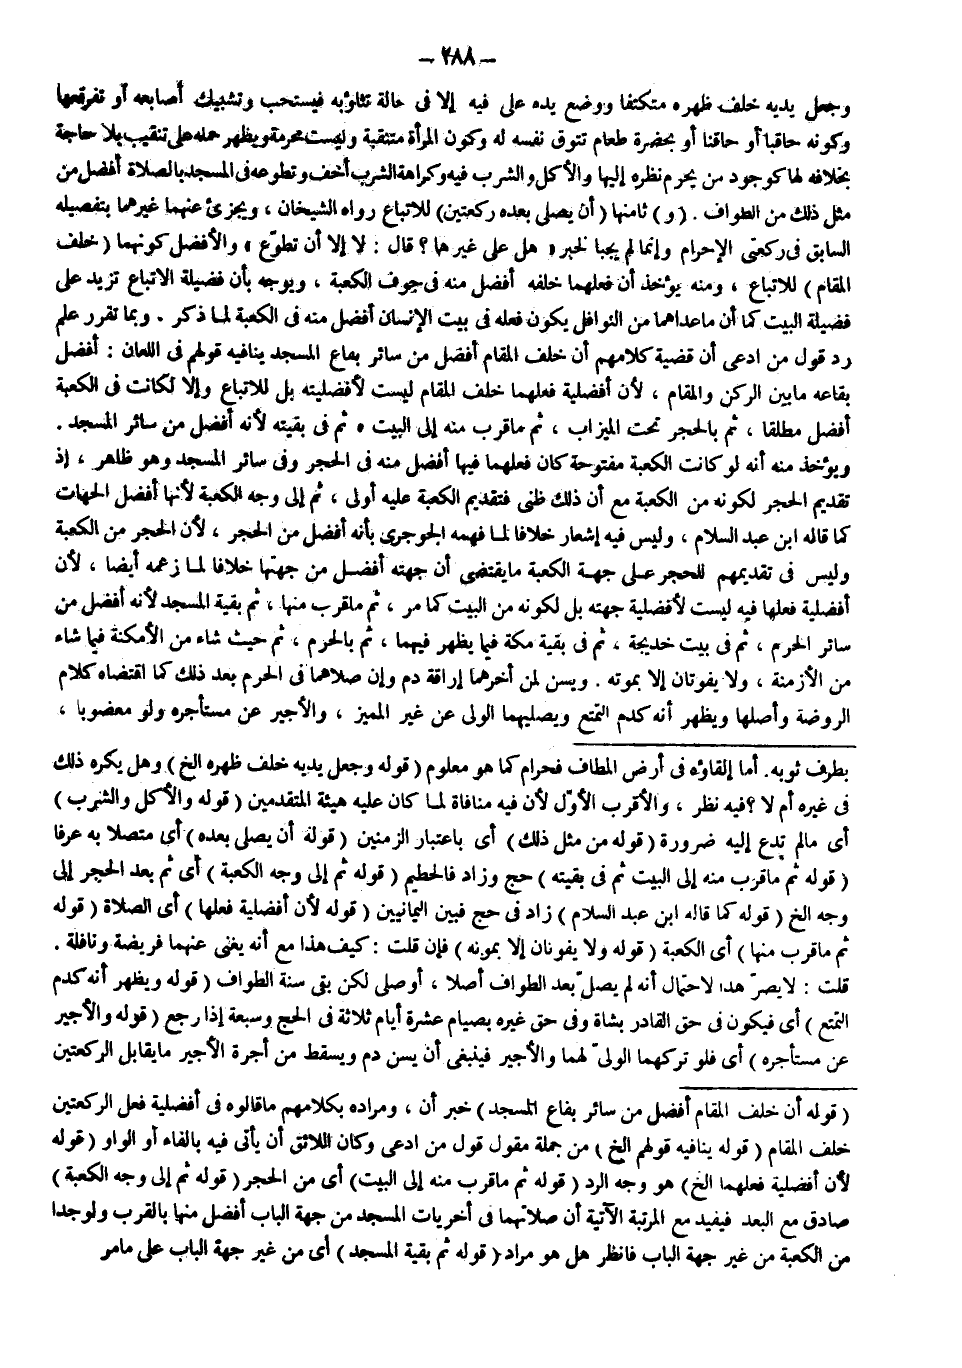 — ٢٨٨ —
وجعل يديه خلف ظهره متكتفا ووضع يده على فيه إلا فى حالة تثاؤبه فيستحب وتشبيك أصابعه أو تفرقعها
وكونه حاقبا أو حاقنا أو بحضرة طعام تتوق نفسه له وكون المرأة متنقبة وليست محرمة ويظهر حمله على تنقيب بلا حاجة
بخلافه لها كوجود من يحرم نظره إليها والأكل والشرب فيه وكراهة الشرب أخف وتطوعه فى المسجد بالصلاة أفضل من
مثل ذلك من الطواف . (و) ثامنها (أن يصلى بعده ركعتين) للاتباع رواه الشيخان ، ويجزئ عنهما غيرهما بتفصيله
السابق فى ركعتى الإحرام وإنما لم يجبا لخبر « هل على غيرها ؟ قال : لا إلا أن تطوّع » والأفضل كونهما ( خلف
المقام ) للاتباع ، ومنه يؤخذ أن فعلهما خلفه أفضل منه فى جوف الكعبة ، ويوجه بأن فضيلة الاتباع تزيد على
فضيلة البيت كما أن ماعداهما من النوافل يكون فعله فى بيت الإنسان أفضل منه فى الكعبة لما ذكر . وبما تقرر علم
رد قول من ادعى أن قضية كلامهم أن خلف المقام أفضل من سائر بقاع المسجد ينافيه قولهم فى اللعان : أفضل
بقاعه مابين الركن والمقام ، لأن أفضلية فعلهما خلف المقام ليست لأفضليته بل للاتباع وإلا لكانت فى الكعبة
أفضل مطلقا ، ثم بالحجر تحت الميزاب ، ثم ماقرب منه إلى البيت ، ثم فى بقيته لأنه أفضل من سائر المسجد .
ويؤخذ منه أنه لو كانت الكعبة مفتوحة كان فعلهما فيها أفضل منه فى الحجر وفى سائر المسجد وهو ظاهر ، إذ
تقديم الحجر لكونه من الكعبة مع أن ذلك ظنى فتقديم الكعبة عليه أولى ، ثم إلى وجه الكعبة لأنها أفضل الجهات
كما قاله ابن عبد السلام ، وليس فيه إشعار خلافا لما فهمه الجوجرى بأنه أفضل من الحجر ، لأن الحجر من الكعبة
وليس فى تقديمهم للحجر على جهة الكعبة مايقتضى أن جهته أفضل من جهتها خلافا لما زعمه أيضا ، لأن
أفضلية فعلها فيه ليست لأفضلية جهته بل لكونه من البيت كما مر ، ثم ماقرب منها ، ثم بقية المسجد لأنه أفضل من
سائر الحرم ، ثم فى بيت خديجة ، ثم فى بقية مكة فيما يظهر فيهما ، ثم بالحرم ، ثم حيث شاء من الأمكنة فيما شاء
من الأزمنة ، ولا يفوتان إلا بموته . ويسن لمن أخرهما إراقة دم وإن صلاهما فى الحرم بعد ذلك كما اقتضاه كلام
الروضة وأصلها ويظهر أنه كدم التمتع ويصليهما الولى عن غير المميز ، والأجير عن مستأجره ولو معضوبا ،
بطرف ثوبه. أما إلقاؤه فى أرض المطاف فحرام كما هو معلوم ( قوله وجعل يديه خلف ظهره الخ ) وهل يكره ذلك
فى غيره أم لا ؟ فيه نظر ، والأقرب الأوّل لأن فيه منافاة لما كان عليه هيئة المتقدمين ( قوله والأكل والشرب )
أى مالم تدع إليه ضرورة ( قوله من مثل ذلك ) أى باعتبار الزمنين ( قوله أن يصلى بعده ) أى متصلا به عرفا
( قوله ثم ماقرب منه إلى البيت ثم فى بقيته ) حج وزاد فالحطيم ( قوله ثم إلى وجه الكعبة ) أى ثم بعد الحجر إلى
وجه الخ ( قوله كما قاله ابن عبد السلام ) زاد فى حج فبين اليمانيين ( قوله لأن أفضلية فعلها ) أى الصلاة ( قوله
ثم ماقرب منها ) أى الكعبة ( قوله ولا يفوتان إلا بموته ) فإن قلت : كيف هذا مع أنه يغنى عنهما فريضة ونافلة .
قلت : لايضرّ هذا لاحتمال أنه لم يصلّ بعد الطواف أصلا ، أوصلى لكن بنى سنة الطواف ( قوله ويظهر أنه كدم
التمتع ) أى فيكون فى حق القادر بشاة وفى حق غيره بصيام عشرة أيام ثلاثة فى الحج وسبعة إذا رجع ( قوله والأجير
عن مستأجره ) أى فلو تركهما الولىّ لهما والأجير فينبغى أن يسن دم ويسقط من أجرة الأجير مايقابل الركعتين
( قوله أن خلف المقام أفضل من سائر بقاع المسجد ) خبر أن ، ومراده بكلامهم ماقالوه فى أفضلية فعل الركعتين
خلف المقام ( قوله ينافيه قولهم الخ ) من جملة مقول قول من ادعى وكان اللائق أن يأتى فيه بالفاء أو الواو ( قوله
لأن أفضلية فعلهما الخ ) هو وجه الرد ( قوله ثم ماقرب منه إلى البيت) أى من الحجر ( قوله ثم إلى وجه الكعبة )
صادق مع البعد فيفيد مع المرتبة الآتية أن صلاتهما فى أخريات المسجد من جهة الباب أفضل منها بالقرب ولوجدا
من الكعبة من غير جهة الباب فانظر هل هو مراد ( قوله ثم بقية المسجد ) أى من غير جهة الباب على مامر